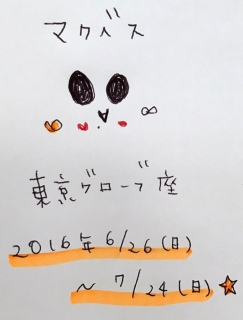 マクベス
東京グローブ座
2016年6/26(日)
～7/24(日)